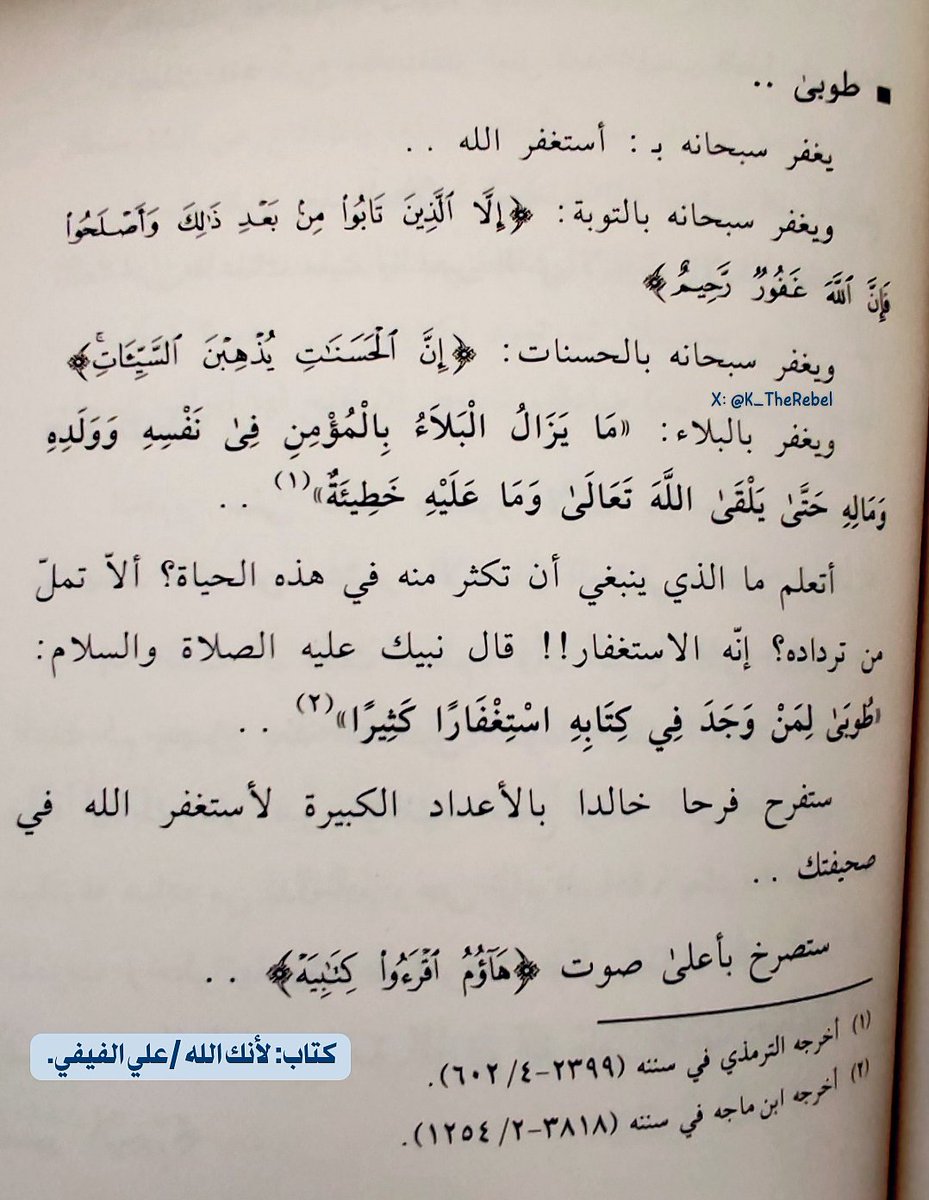 ▪ طوبىٰ ..
يغفر سبحانه بـ: أستغفر الله ..
ويغفر سبحانه بالتوبة: ﴿إِلَّا ٱلَّذِينَ تَابُوا۟ مِنۢ بَعْدِ ذَٰلِكَ وَأَصْلَحُوا۟
فَإِنَّ ٱللَّهَ غَفُورٌ رَّحِيمٌ﴾
ويغفر سبحانه بالحسنات: ﴿إِنَّ ٱلْحَسَنَٰتِ يُذْهِبْنَ ٱلسَّيِّـَٔاتِ ۚ﴾
X: @K_TheRebel
ويغفر بالبلاء: «مَا يَزَالُ الْبَلَاءُ بِالْمُؤْمِنِ فِىٰ نَفْسِهِ وَوَلَدِهِ
وَمَالِهِ حَتَّىٰ يَلْقَىٰ اللَّهَ تَعَالَىٰ وَمَا عَلَيْهِ خَطِيئَةٌ»(١) ..
أتعلم ما الذي ينبغي أن تكثر منه في هذه الحياة؟ ألاّ تملّ
من ترداده؟ إنّه الاستغفار!! قال نبيك عليه الصلاة والسلام:
«طُوبَىٰ لِمَنْ وَجَدَ فِي كِتَابِهِ اسْتِغْفَارًا كَثِيرًا»(٢) ..
ستفرح فرحا خالدا بالأعداد الكبيرة لأستغفر الله في
صحيفتك ..
ستصرخ بأعلىٰ صوت ﴿هَآؤُمُ ٱقْرَءُوا۟ كِتَٰبِيَهْ﴾ ..
(١) أخرجه الترمذي في سننه (٢٣٩٩-٤/ ٦٠٢).
(٢) أخرجه ابن ماجه في سننه (٣٨١٨-٢/ ١٢٥٤).
كتاب: لأنك الله /علي الفيفي.